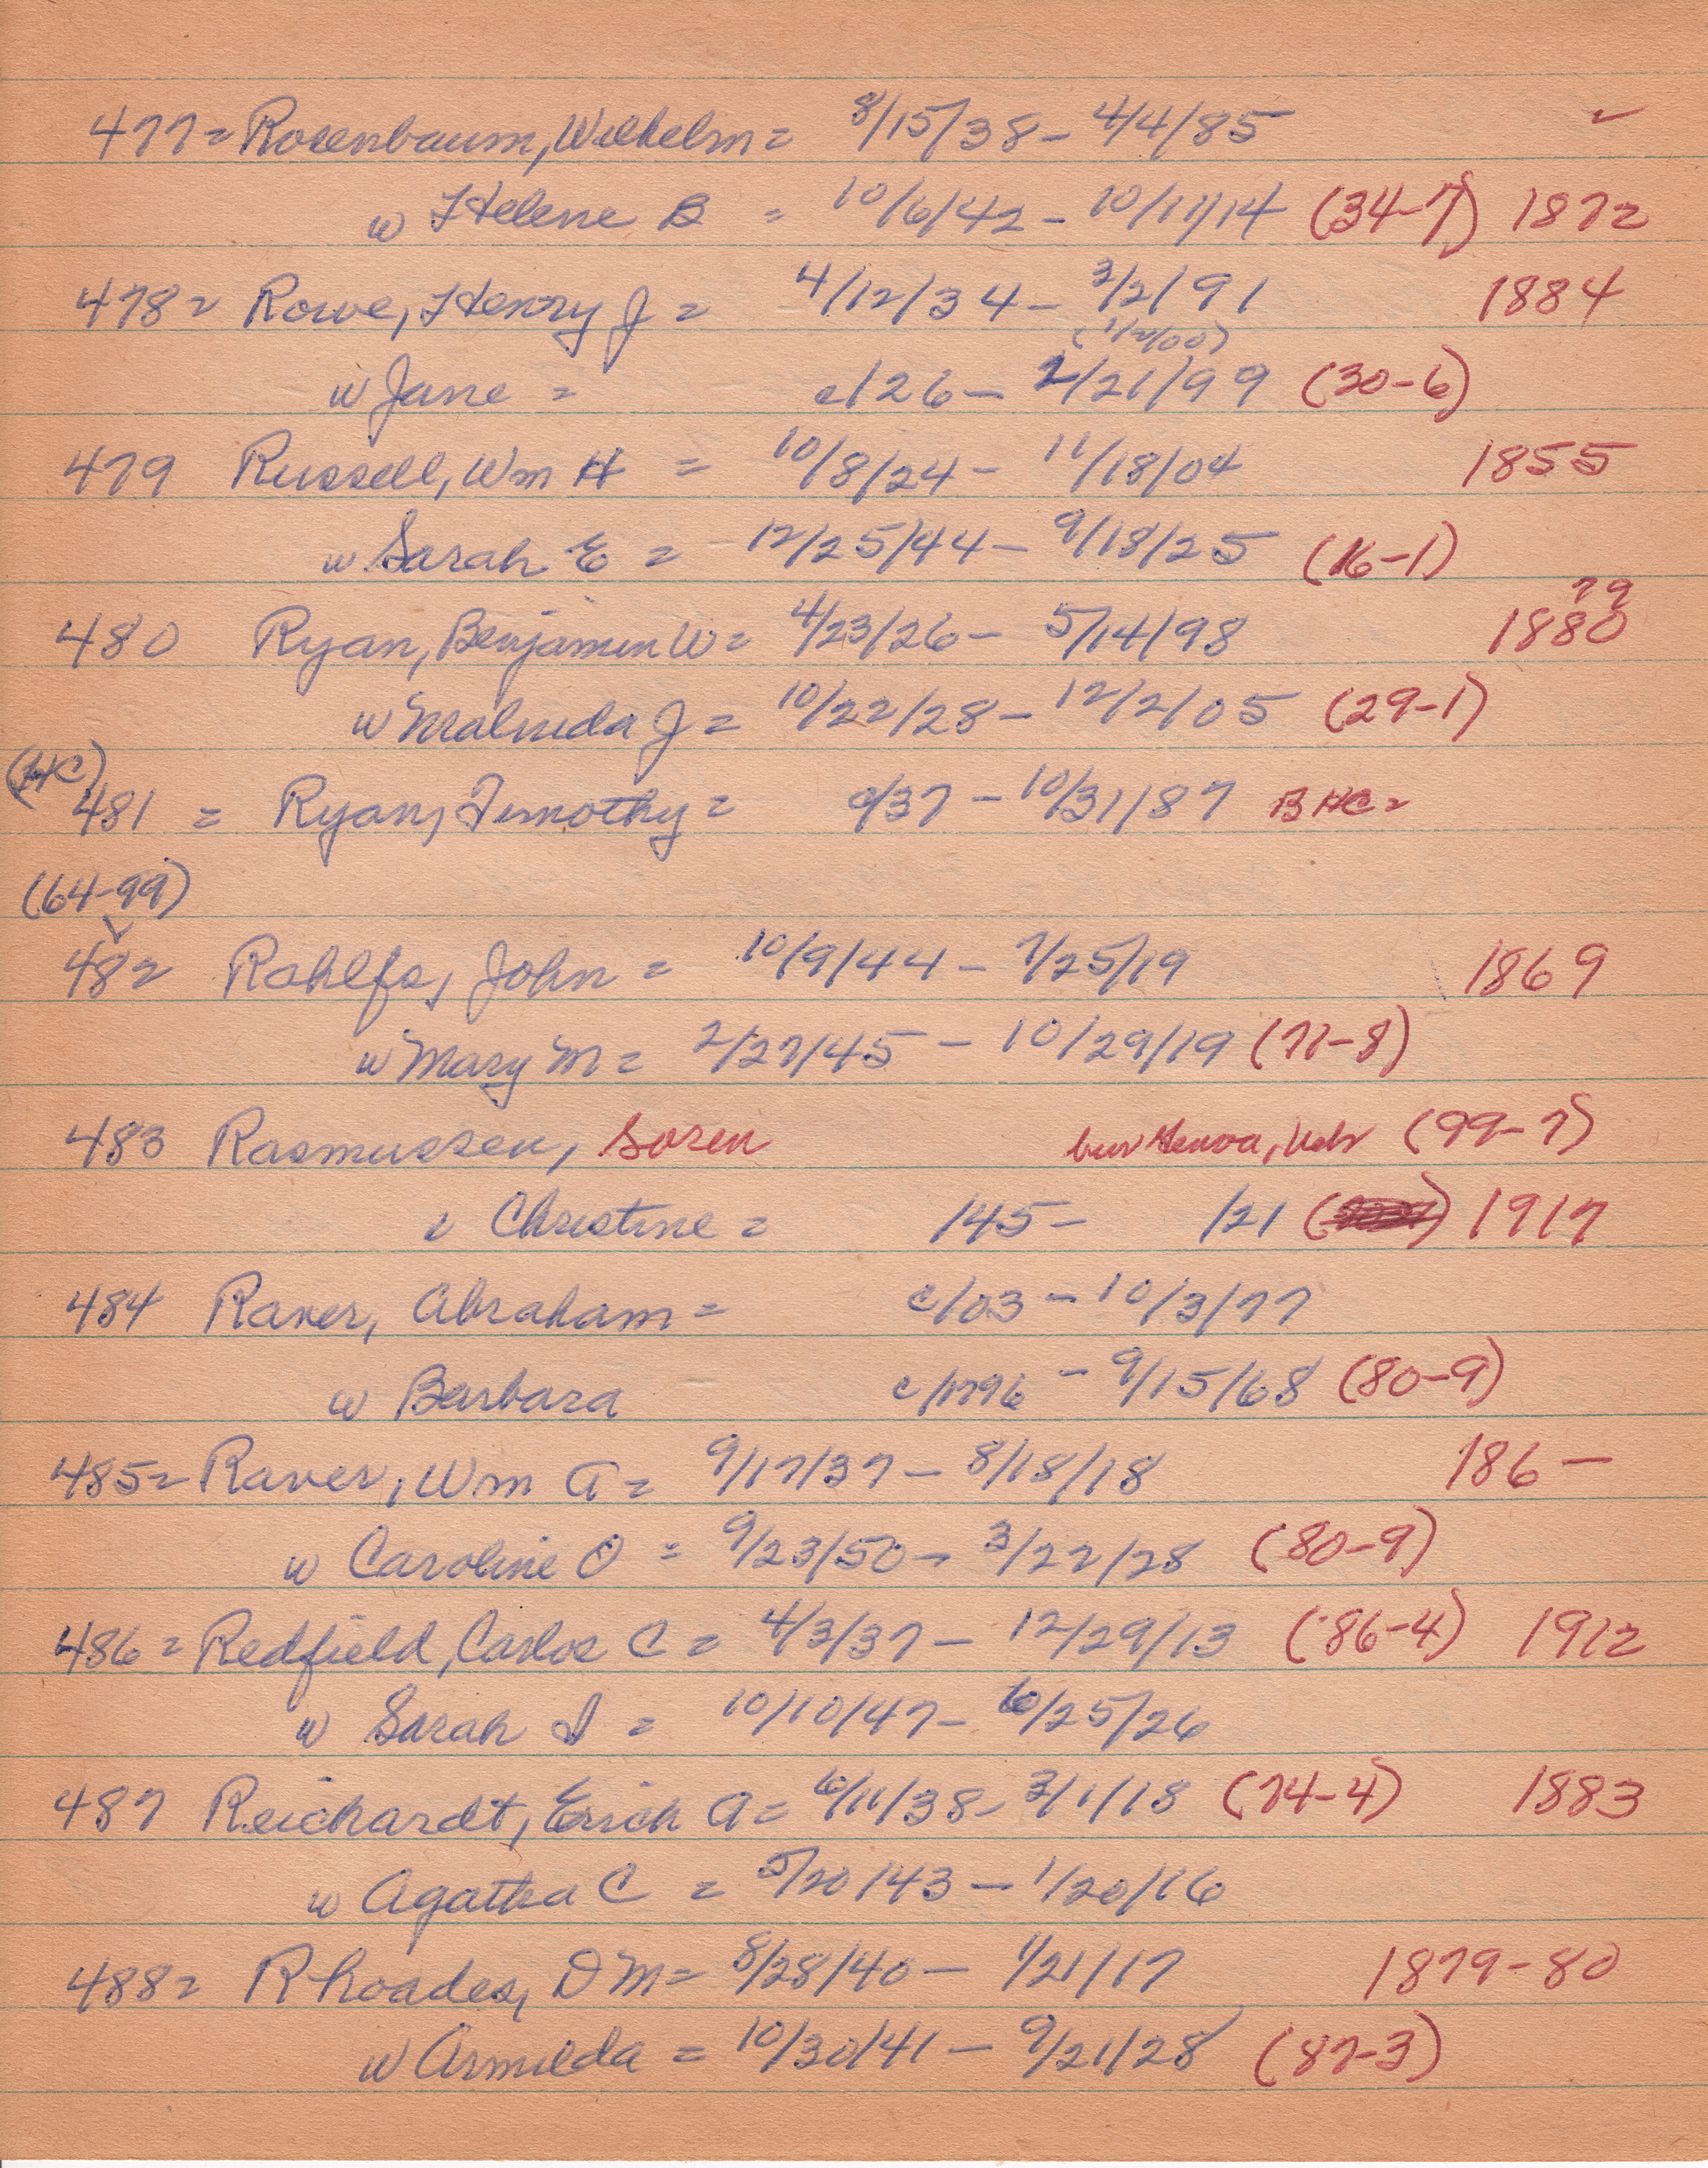 477= Rosenbaum, Wilhelm = 8/15/38 - 4/4/85 ✓
w Helene B = 10/6/42 - 10/17/14 (34-7) 1872
478= Rowe, Henry J = 4/12/34 - 3/2/91 1884
w Jane = c/26 - 2/21/99 (30-6)
479 Russell, Wm H = 10/8/24 - 11/18/04 1855
w Sarah E = 12/25/44 - 9/18/25 (16-1)
79
480 Ryan, Benjamin W= 4/23/26 - 5/14/98 1880
w Malinda J = 10/22/28 - 12/2/05 (29-1)
(HC)
481 = Ryan, Timothy = c/37 - 10/31/87 B HC=
(64-99)
482 Rahlfs, John = 10/9/44 - 7/25/19 1869
w Mary M = 2/27/45 - 10/29/19 (77-8)
483 Rasmussen, Soren bur Genoa, Neb (99-7)
Christine = /45 - /21 1917
484 Raver, Abraham = c/03 - 10/3/77
w Barbara c/1796 - 9/15/68 (80-9)
485= Raver, Wm A = 9/17/37 - 8/18/18 186-
w Caroline O = 9/23/50 - 3/22/28 (80-9)
486= Redfield, Carlos C = 4/3/37 - 12/29/13 (86-4) 1912
w Sarah I = 10/10/47 - 6/25/26
487 Reichardt, Erich A = 6/11/38 - 3/1/18 (74-4) 1883
w Agatha C = 5/20/43 - 1/20/16
488= Rhoades, D M = 8/28/40 - 1/21/17 1879-80
w Armilda = 10/30/41 - 9/21/28 (87-3)